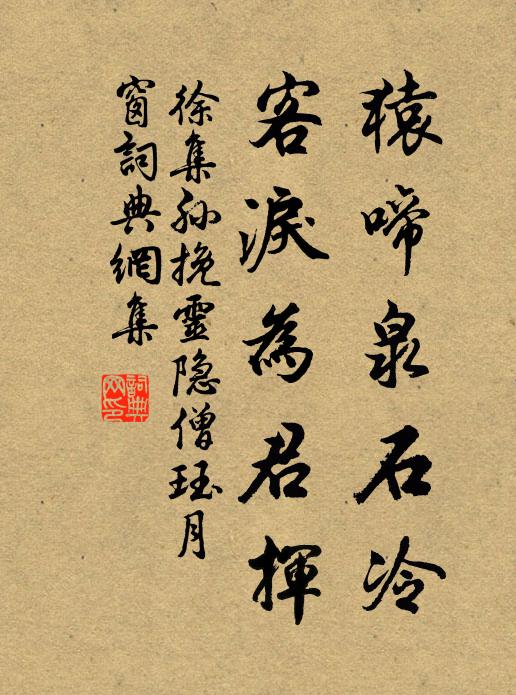 猿啼泉石冷
客淚為君揮
徐集孙挽靈隐僧珏月
窗詞典網集
詞典
网印